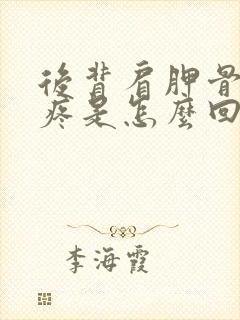 後背肩胛骨
疼是怎麼回
李海霞